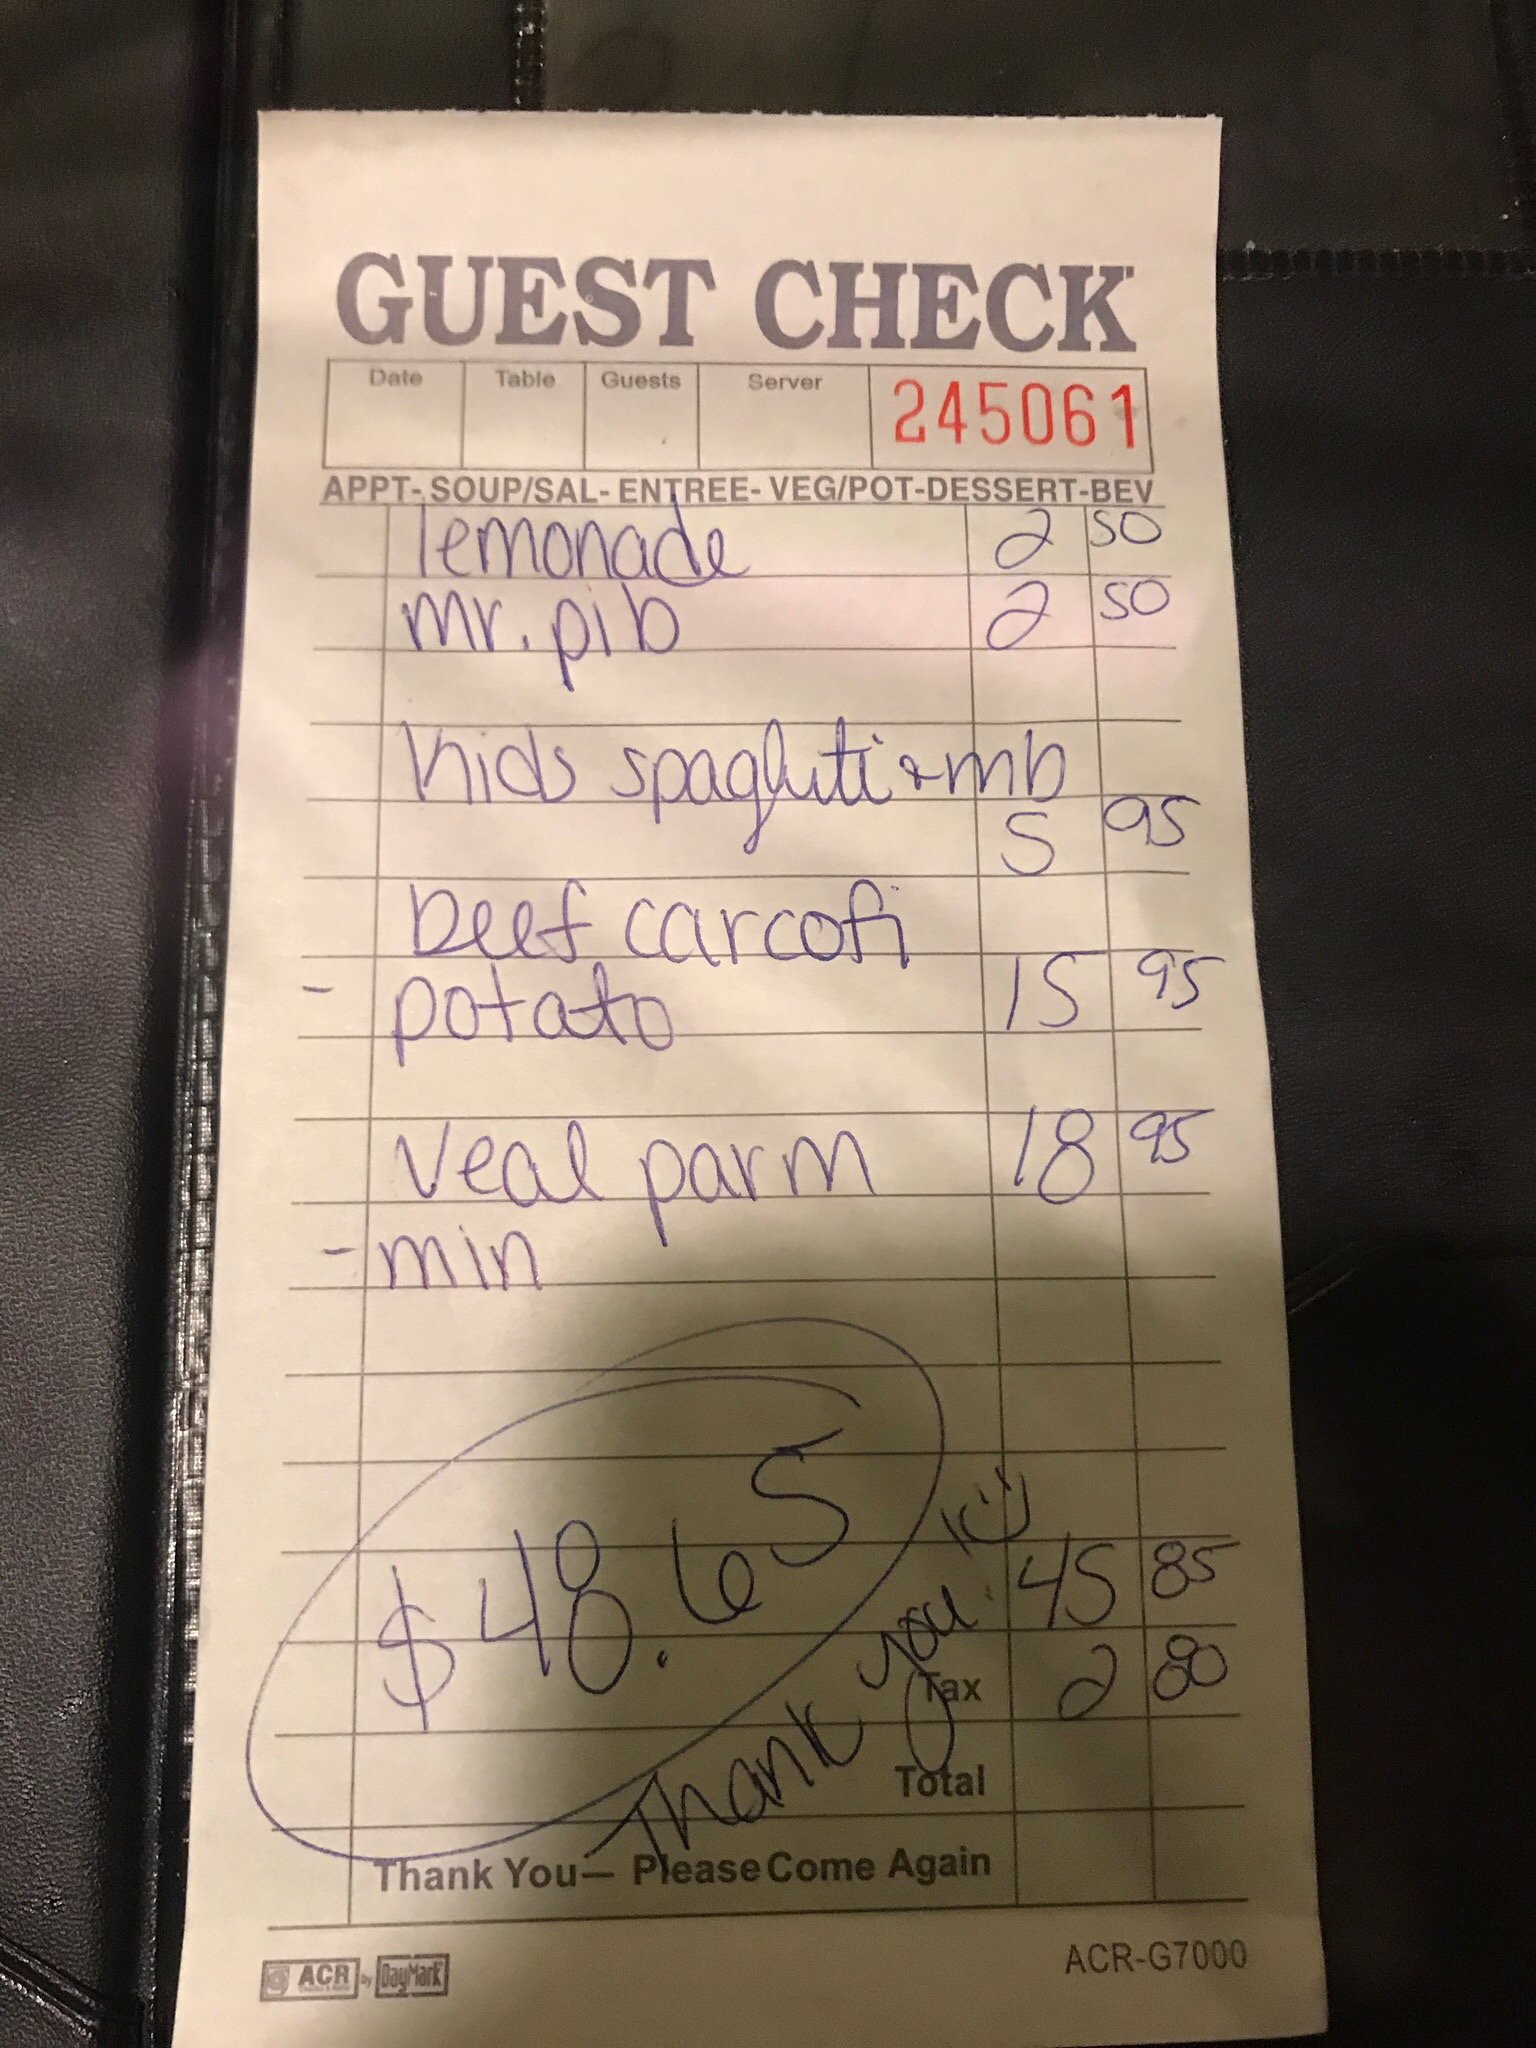 GUEST CHECK
Date Table Guests Server 245061
APPT- SOUP/SAL- ENTREE- VEG/POT-DESSERT-BEV
lemonade 2 50
mr. pib 2 50
kids spaghuti + mb
5 95
beef carcofi
- potato 15 95
veal parm 18 95
- min
$48.65
45 85
Tax 2 80
Thank you :)
Total
Thank You— Please Come Again
ACR by DayMark ACR-G7000